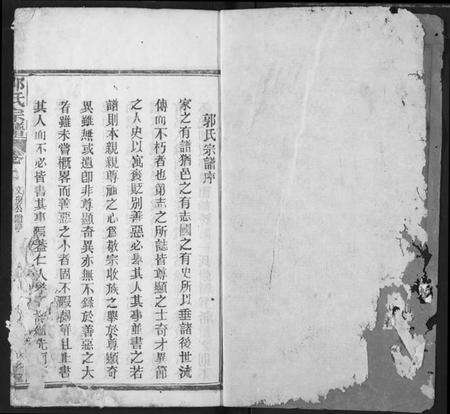 郭氏宗譜序
家之有譜猶邑之有志國之有史所以垂諸後世流
傳而不朽者也第志之所誌皆尊顯之士奇才異節
之人史以寓褒貶別善惡必舉其人其事並書之若
譜則本親親尊祖之心爲敬宗收族之舉於尊顯奇
異雖無或遺卽非尊顯奇異亦無不錄於善惡之大
者雖未嘗槪畧而善惡之小者固不
其人而不必皆書其事
氏宗譜